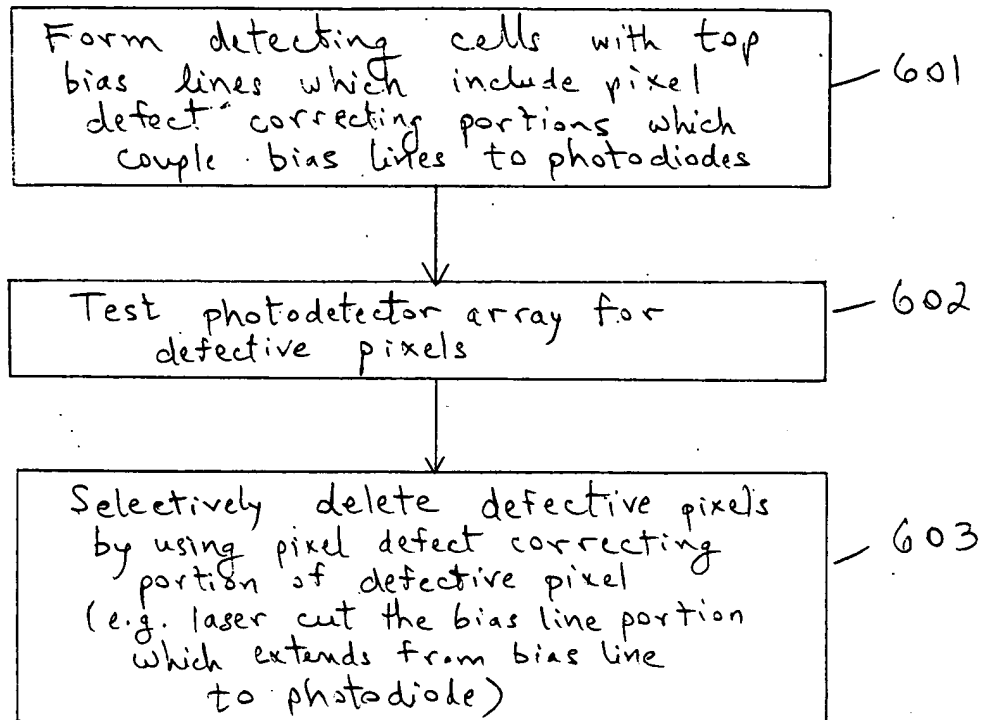 Form detecting cells with top
bias lines which include pixel
defect correcting portions which
couple bias lines to photodiodes
601
Test photodetector array for
defective pixels
602
Selectively delete defective pixels
by using pixel defect correcting
portion of defective pixel
(e.g. laser cut the bias line portion
which extends from bias line
to photodiode)
603